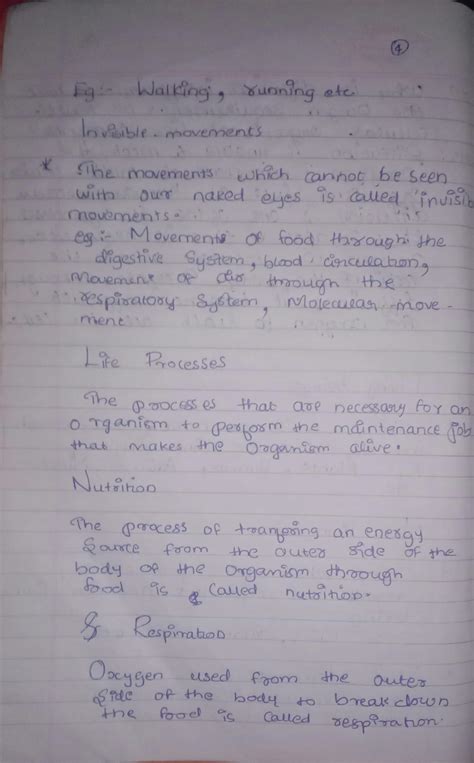 4
Eg:- Walking, running etc
Invisible movements
* The movements which cannot be seen
with our naked eyes is called "invisib
movements.
eg:- Movements of food through the
digestive system, blood circulation,
Movement of air through the
respiratory system, Molecular move-
ment
Life Processes
The processes that are necessary for an
organism to perform the maintenance job
that makes the organism alive.
Nutrition
The process of tranfering an energy
source from the outer side of the
body of the organism through
food is called nutrition.
Respiration
Oxygen used from the outer
side of the body to break down
the food is called respiration.